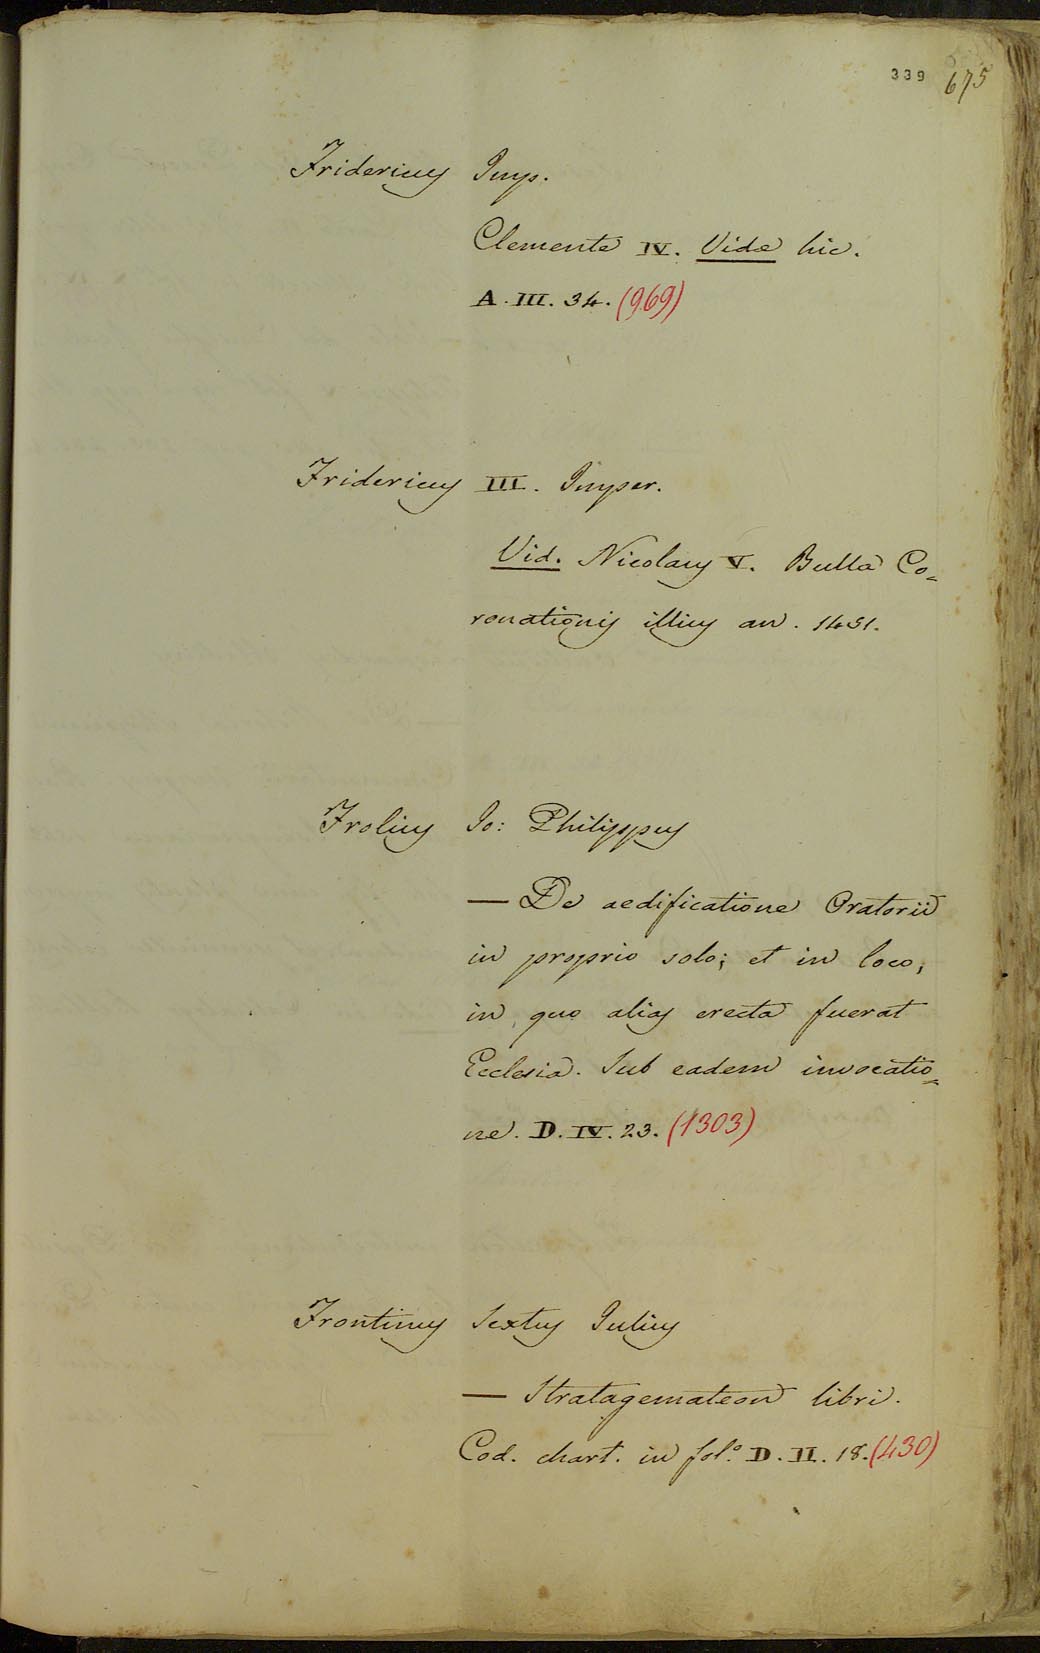 339 675
Fridericus Imp.
Clemente IV. Vide hic.
A. III. 34. (969)
Fridericus III. Imper.
Vid. Nicolaus V. Bulla Co=
ronationis illius an. 1451.
Frolius Jo: Philippus
— De aedificatione Oratorii
in proprio solo; et in loco,
in quo alias erecta fuerat
Ecclesia. Sub eadem invocatio=
ne. D. IV. 23. (1303)
Frontinus Sextus Julius
— Stratagemateon libri.
Cod. chart. in fol.º D. II. 18. (430)